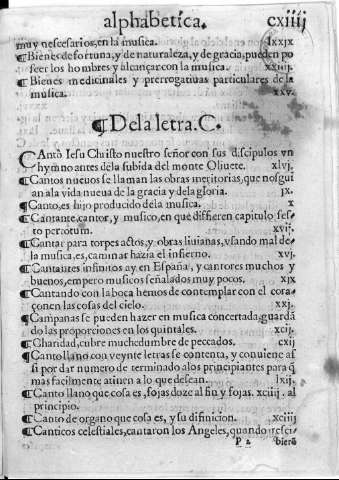 alphabetica. cxiiij
muy nescesarios, en la musica. lxxjx
¶Bienes de fortuna, y de naturaleza, y de gracia, pueden po
seer los hombres y alcançar con la musica. xxiiij.
¶Bienes medicinales y prerrogatiuas particulares de la
musica. xxv.
¶De la letra. C.
CAntò Iesu Christo nuestro señor con sus discipulos vn
hymno antes de la subida del monte Oliuete. xlvj.
¶Cantos nueuos se llaman las obras meritorias, que nos gui
an ala vida nueua de la gracia y de la gloria. jx.
¶Canto, es hijo producido de la musica. x
¶Cantante, cantor, y musico, en que differen capitulo ses-
to per totum. xvij.
¶Cantar para torpes actos, y obras liuianas, vsando mal de
la musica, es, caminar hazia el infierno. xvj.
¶Cantantes infinitos ay en España, y cantores muchos y
buenos, empero musicos señalados muy pocos. xjx
¶Cantando con la boca hemos de contemplar con el cora-
çon en las cosas del cielo. xxj.
¶Campanas se pueden hazer en musica concertada, guardã
do las proporciones en los quintales. xcij.
¶Charidad, cubre muchedumbre de peccados. cxij
¶Canto llano con veynte letras se contenta, y conuiene as
si por dar numero de terminado alos principiantes para q̃
mas facilmente atinen a lo que desean. lxij.
¶Canto llano que cosa es, fojas doze al fin y fojas. xciiij. al
principio.
¶Canto de organo que cosa es, y su difinicion. xciiij
¶Canticos celestiales, cantaron los Angeles, quando resci-
P 2 bierõ